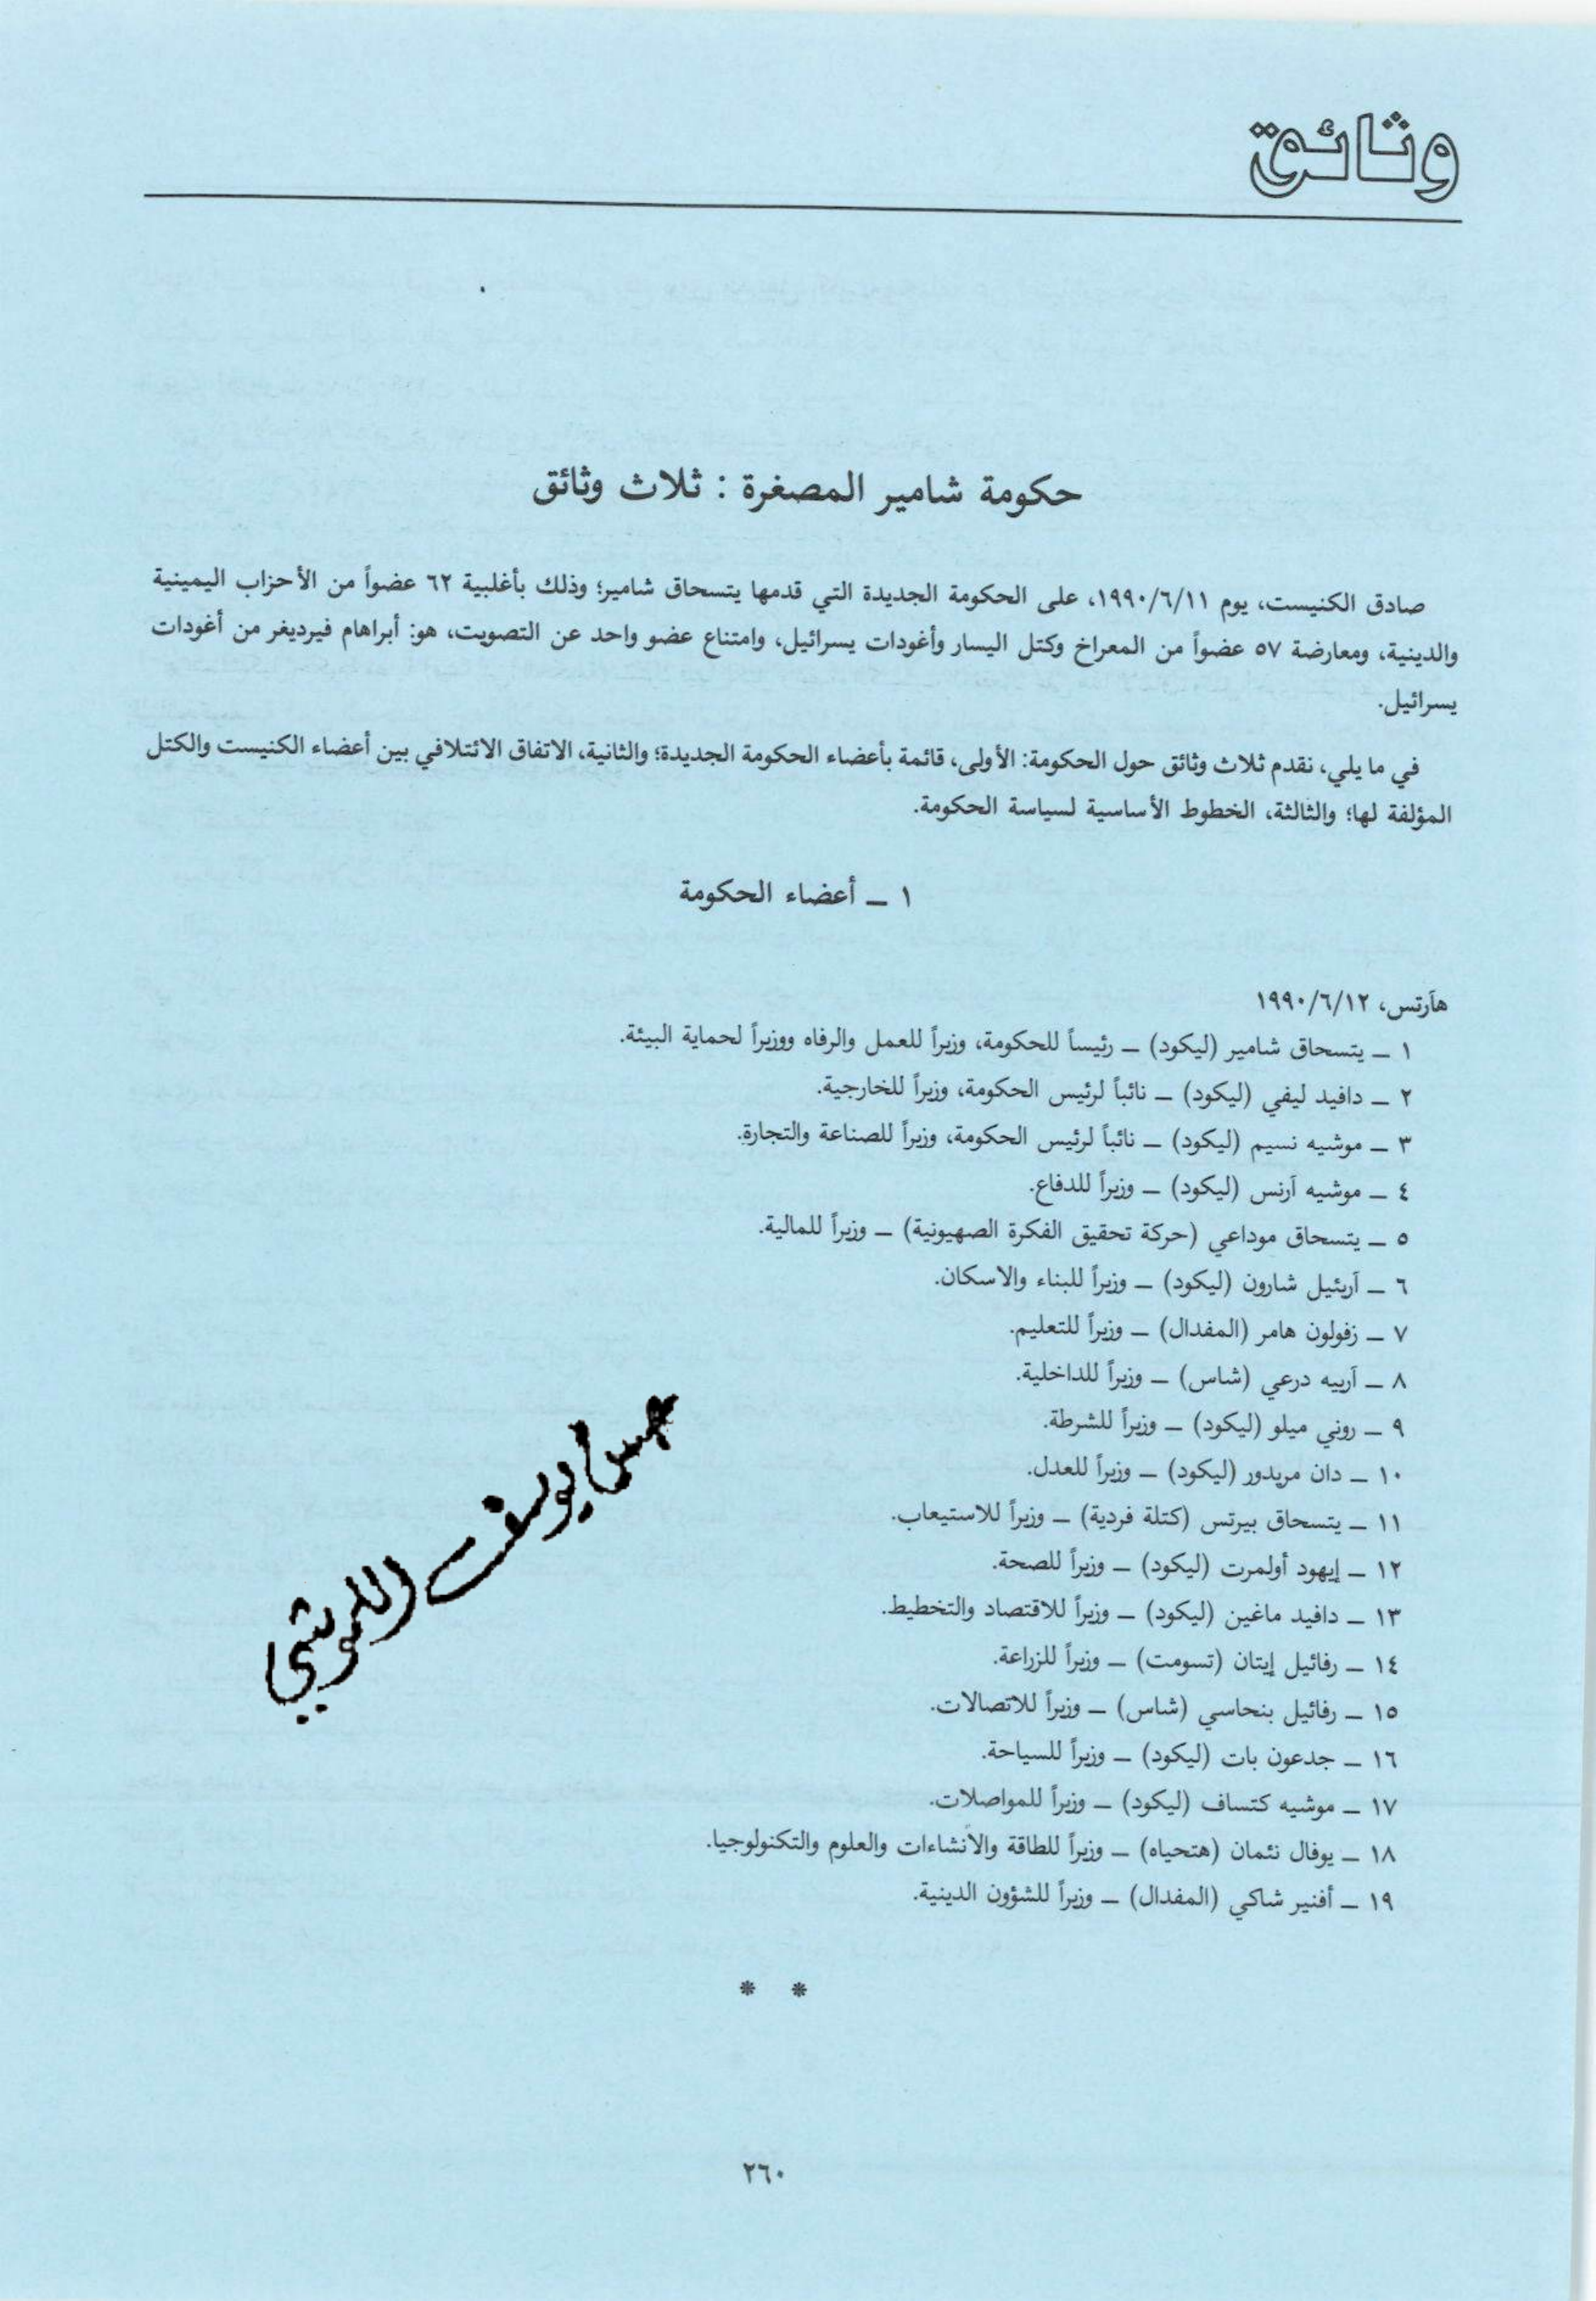 وثائق
حكومة شامير المصغرة : ثلاث وثائق
صادق الكنيست، يوم ١٩٩٠/٦/١١، على الحكومة الجديدة التي قدمها يتسحاق شامير؛ وذلك بأغلبية ٦٢ عضواً من الأحزاب اليمينية
والدينية، ومعارضة ٥٧ عضواً من المعراخ وكتل اليسار وأغودات يسرائيل، وامتناع عضو واحد عن التصويت، هو: أبراهام فيرديغر من أغودات
يسرائيل.
في ما يلي، نقدم ثلاث وثائق حول الحكومة: الأولى، قائمة بأعضاء الحكومة الجديدة؛ والثانية، الاتفاق الائتلافي بين أعضاء الكنيست والكتل
المؤلفة لها؛ والثالثة، الخطوط الأساسية لسياسة الحكومة.
١ ــ أعضاء الحكومة
هآرتس، ١٩٩٠/٦/١٢
١ ــ يتسحاق شامير (ليكود) ــ رئيساً للحكومة، وزيراً للعمل والرفاه ووزيراً لحماية البيئة.
٢ ــ دافيد ليفي (ليكود) ــ نائباً لرئيس الحكومة، وزيراً للخارجية.
٣ ــ موشيه نسيم (ليكود) ــ نائباً لرئيس الحكومة، وزيراً للصناعة والتجارة.
٤ ــ موشيه آرنس (ليكود) ــ وزيراً للدفاع.
٥ ــ يتسحاق موداعي (حركة تحقيق الفكرة الصهيونية) ــ وزيراً للمالية.
٦ ــ آريئيل شارون (ليكود) ــ وزيراً للبناء والاسكان.
٧ ــ زفولون هامر (المفدال) ــ وزيراً للتعليم.
٨ ــ آرييه درعي (شاس) ــ وزيراً للداخلية.
٩ ــ روني ميلو (ليكود) ــ وزيراً للشرطة.
١٠ ــ دان مريدور (ليكود) ــ وزيراً للعدل.
١١ ــ يتسحاق بيرتس (كتلة فردية) ــ وزيراً للاستيعاب.
١٢ ــ إيهود أولمرت (ليكود) ــ وزيراً للصحة.
١٣ ــ دافيد ماغين (ليكود) ــ وزيراً للاقتصاد والتخطيط.
١٤ ــ رفائيل إيتان (تسومت) ــ وزيراً للزراعة.
١٥ ــ رفائيل بنحاسي (شاس) ــ وزيراً للاتصالات.
١٦ ــ جدعون بات (ليكود) ــ وزيراً للسياحة.
١٧ ــ موشيه كتساف (ليكود) ــ وزيراً للمواصلات.
١٨ ــ يوفال نئمان (هتحياه) ــ وزيراً للطاقة والأنشاءات والعلوم والتكنولوجيا.
١٩ ــ أفنير شاكي (المفدال) ــ وزيراً للشؤون الدينية.
* *
يوسف
٢٦٠